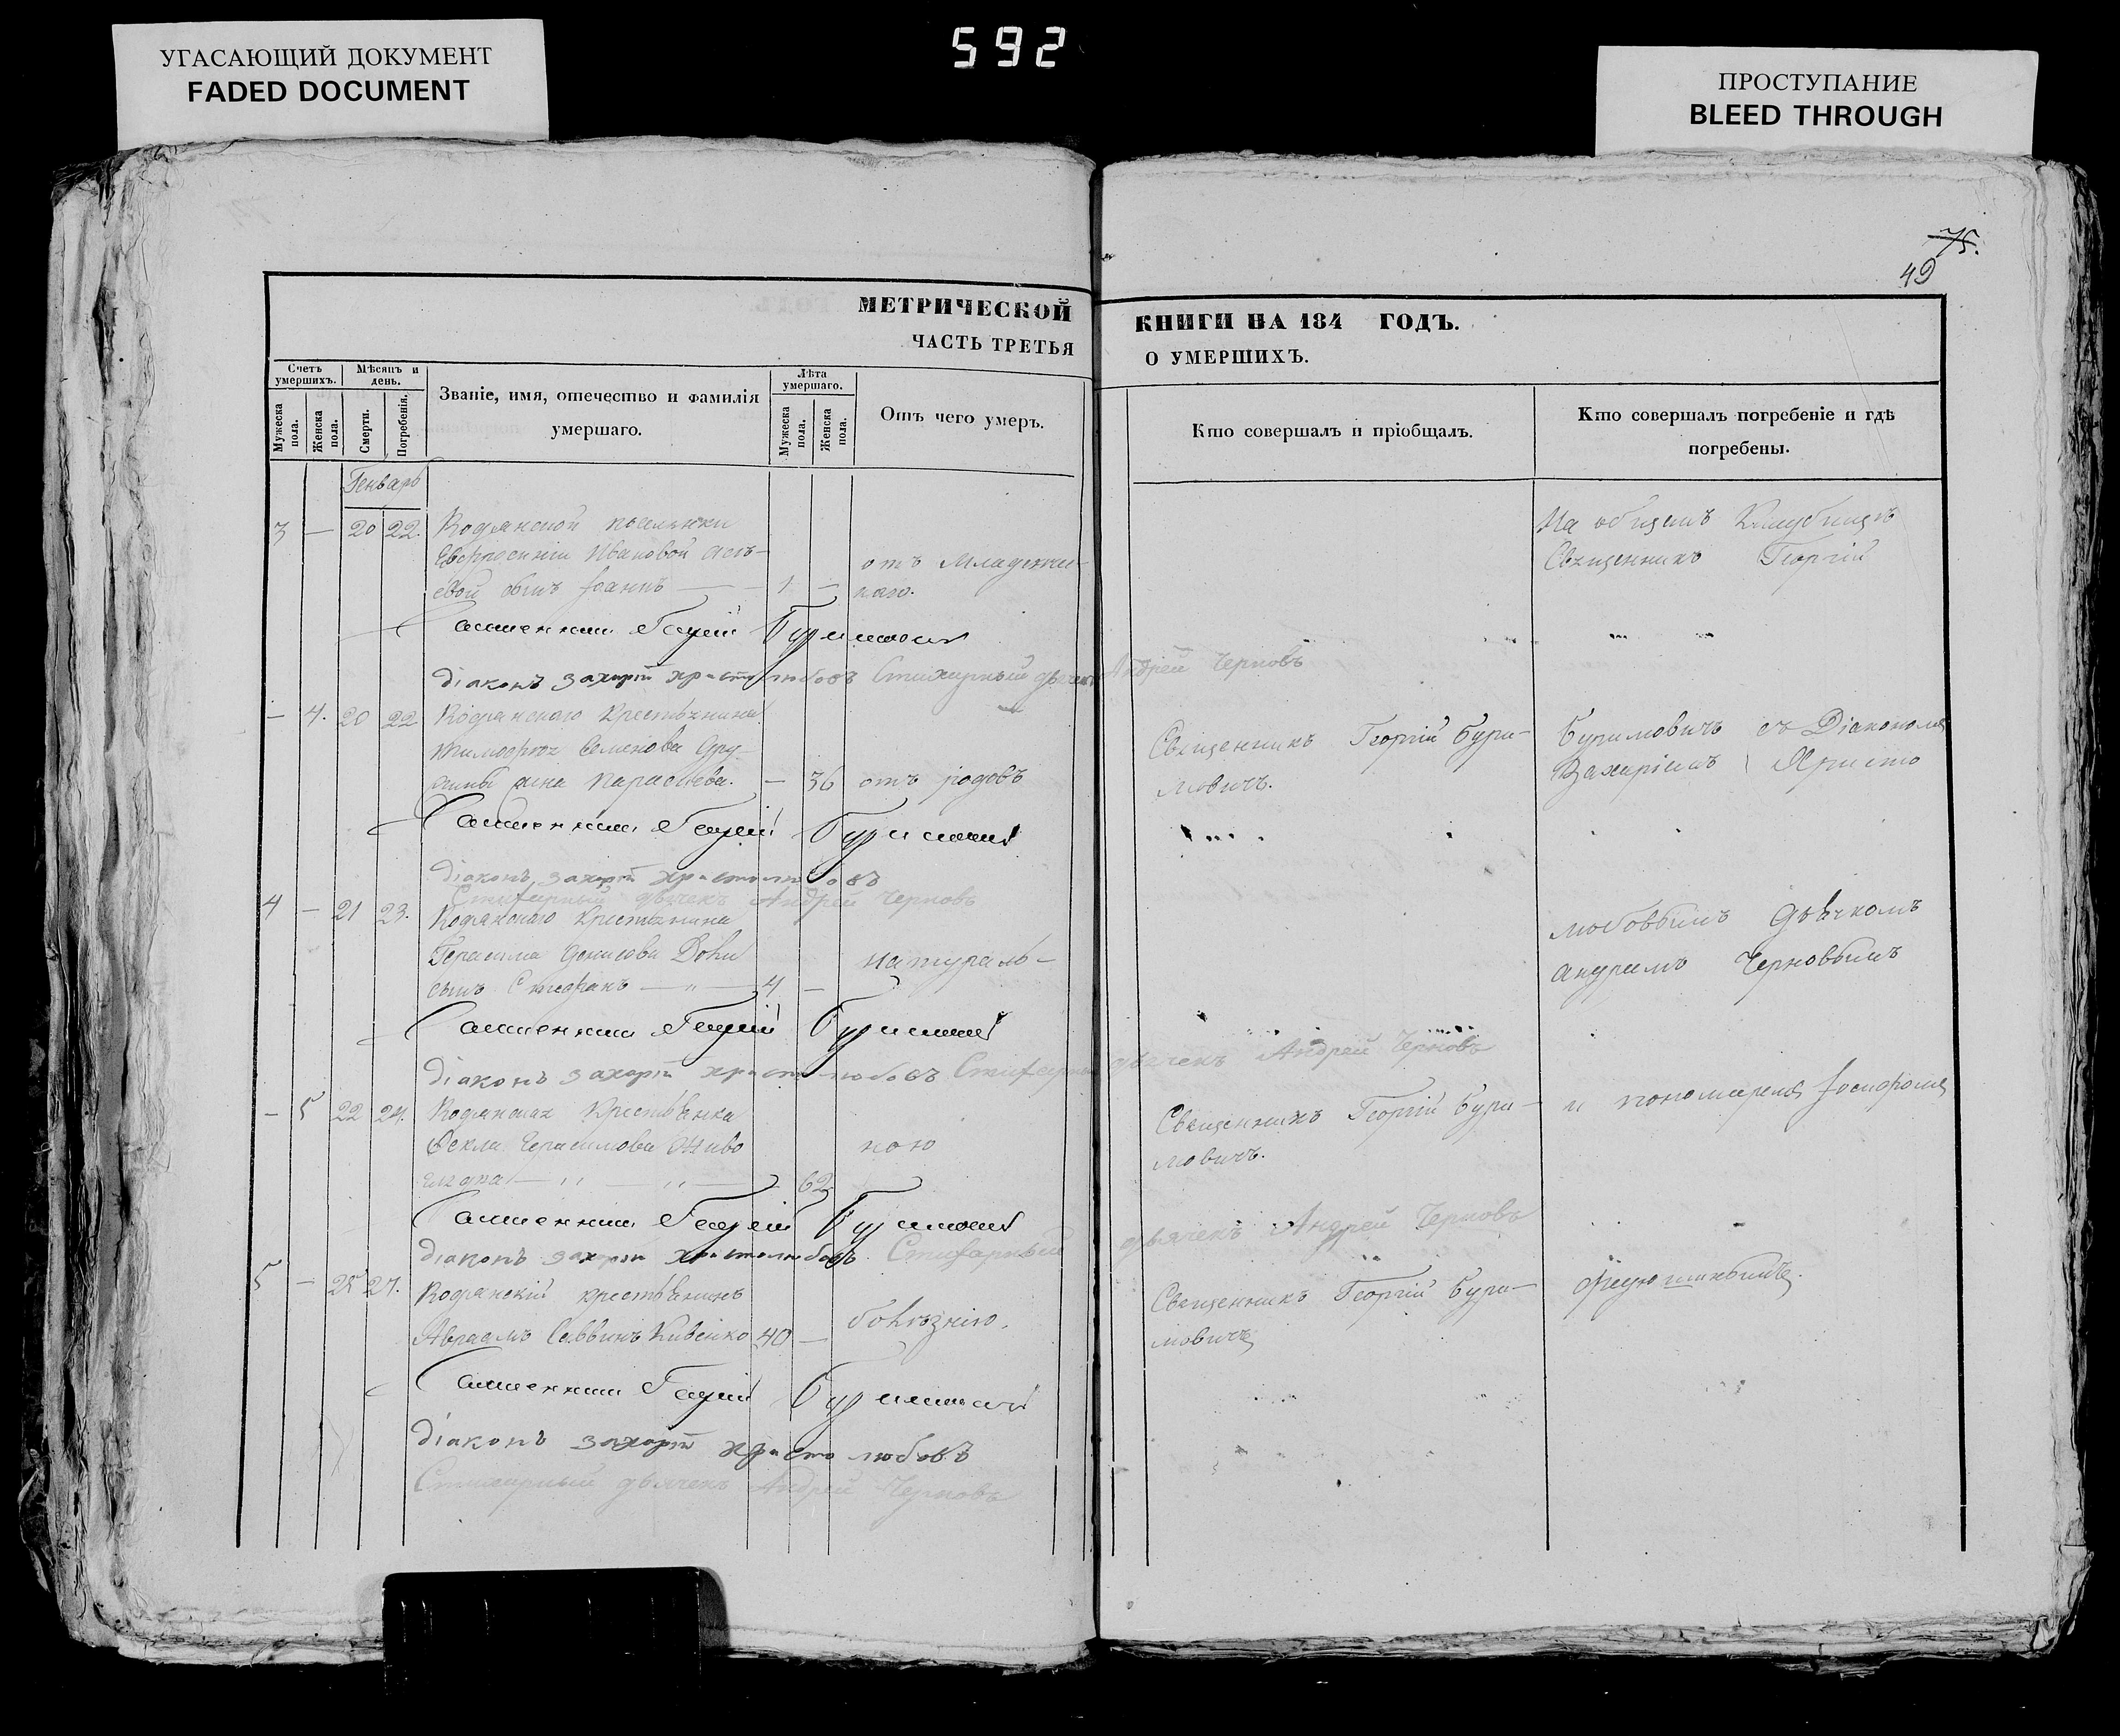 УГАСАЮЩИЙ ДОКУМЕНТ
FADED DOCUMENT
592
ПРОСТУПАНИЕ
BLEED THROUGH
75.
49
МЕТРИЧЕСКОЙ КНИГИ НА 184 ГОДЪ.
ЧАСТЬ ТРЕТЬЯ О УМЕРШИХЪ.
Счетъ умершихъ.
Мужеска пола.
Женска пола.
Мѣсяцъ и день.
Смерти.
Погребенія.
Званіе, имя, отечество и фамилія умершаго.
Лѣта умершаго.
Мужеска пола.
Женска пола.
Отъ чего умеръ.
Кто совершалъ и пріобщалъ.
Кто совершалъ погребеніе и гдѣ погребены.
Генварь
3 — 20 22. Кодянской
Евфросиніи Ивановой
сынъ Іоаннъ — 1 —
отъ Младенче-
каго.
На общемъ
Священникъ Георгій
Священникъ Георгій Буримовичъ
Діаконъ Захарій Христолюбовъ Стихарный дьячекъ Андрей Черновъ
— 4. 20 22 Кодянскаго Крестьянина
Тимофея Семенова
жена — 36 отъ родовъ
Священникъ Георгій Бури-
мовичъ.
Буримовичъ съ Діакономъ
Захаріемъ Христо
Священникъ Георгій Буримовичъ
Діаконъ Захарій Христолюбовъ
Стихарный дьячекъ Андрей Черновъ
4 — 21 23. Кодянскаго Крестьянина
Герасима Денисова
сынъ Стефанъ — 4 —
натураль-
любовымъ Дьячкомъ
Андреемъ Черновымъ
Священникъ Георгій Буримовичъ
Діаконъ Захарій Христолюбовъ Стихарный дьячекъ Андрей Черновъ
— 5 22 24. Кодянская Крестьянка
Фекла Герасимова
62
ною
Священникъ Георгій Бури-
мовичъ.
и пономаремъ Іосифомъ
Священникъ Георгій Буримовичъ
Діаконъ Захарій Христолюбовъ Стихарный дьячекъ Андрей Черновъ
5 — 25 27. Кодянскій крестьянинъ
Авраамъ Саввинъ 40 —
болѣзнію.
Священникъ Георгій Бури-
мовичъ
Священникъ Георгій Буримовичъ
Діаконъ Захарій Христолюбовъ
Стихарный дьячекъ Андрей Черновъ